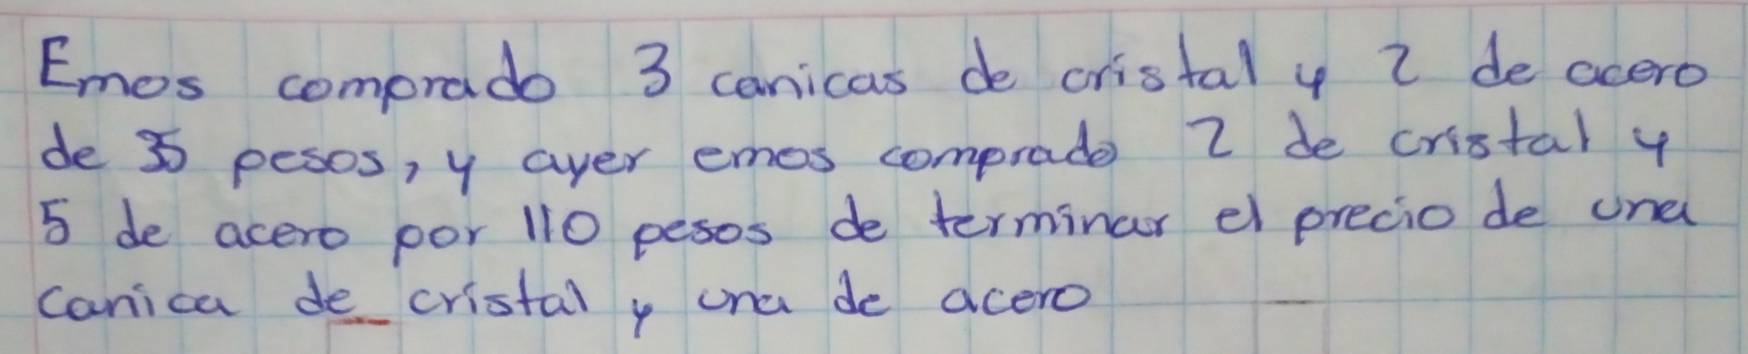 Emos comprado 3 canicas de cristal y 2 de acero
de 35 pesos, y ayer emos comprado 2 de cristal y
5 de acero por 110 pesos de terminar el precio de una
canica de cristal y una de acero